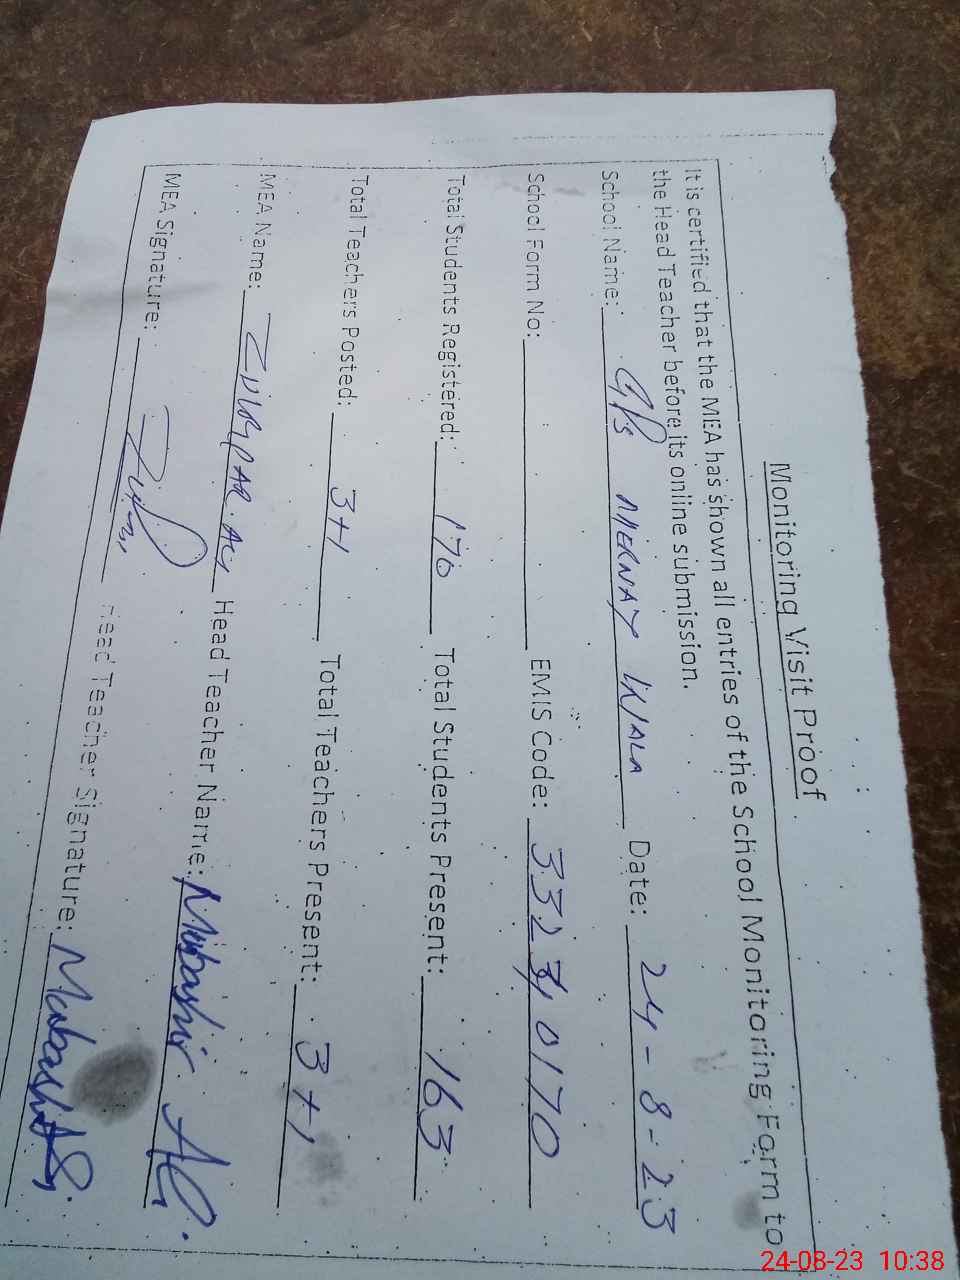 Monitoring Visit Proof
It is certified that the MEA has shown all entries of the School Monitoring Form to
the Head Teacher before its online submission.
School Name: GPS MERNAY WALA Date: 24-8-23
School Form No: EMIS Code: 33230170
Total Students Registered: 176 Total Students Present: 163
Total Teachers Posted: 3+1 Total Teachers Present: 3+1
MEA Name: ZULFIQAR ALI Head Teacher Name: Mubashir Ali
MEA Signature: Head Teacher Signature: Mubashir
24-08-23 10:38